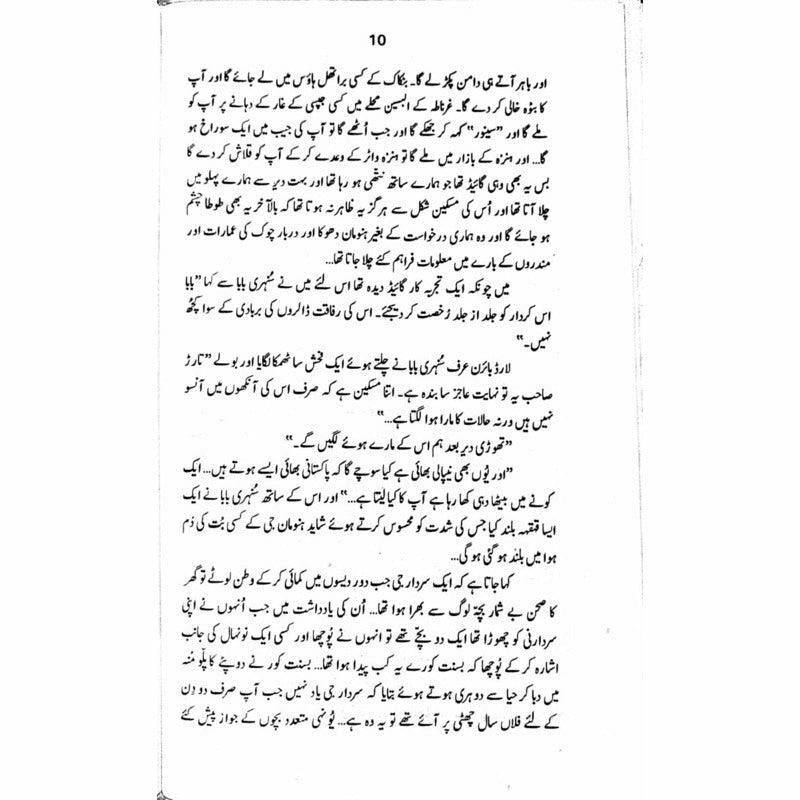 10
اور باہر آتے ہی دامن پکڑ لے گا۔ بنکاک کے کسی براتھل ہاؤس میں لے جائے گا اور آپ
کا بٹوہ خالی کر دے گا۔ غرناطہ کے البسین محلے میں کسی جپسی کے غار کے دہانے پر آپ کو
ملے گا اور ”سینور“ کہہ کر جھکے گا اور جب اُٹھے گا تو آپ کی جیب میں ایک سوراخ ہو
گا... اور ہنزہ کے بازار میں ملے گا تو ہنزہ واٹر کے وعدے کر کے آپ کو قلاش کر دے گا
بس یہ بھی وہی گائیڈ تھا جو ہمارے ساتھ نتھی ہو رہا تھا اور بہت دیر سے ہمارے پہلو میں
چلا آتا تھا اور اُس کی مسکین شکل سے ہرگز یہ ظاہر نہ ہوتا تھا کہ بالآخر یہ بھی طوطا چشم
ہو جائے گا اور وہ ہماری درخواست کے بغیر ہنومان دھوکا اور دربار چوک کی عمارات اور
مندروں کے بارے میں معلومات فراہم کئے چلا جاتا تھا...
میں چونکہ ایک تجربہ کار گائیڈ دیدہ تھا اس لئے میں نے سُنہری بابا سے کہا ”بابا
اس کردار کو جلد از جلد رُخصت کر دیجئے۔ اس کی رفاقت ڈالروں کی بربادی کے سوا کچھ
نہیں۔“
لارڈ بائرن عرف سُنہری بابا نے چلتے ہوئے ایک فحش سا ٹھمکا لگایا اور بولے ”تارڑ
صاحب یہ تو نہایت عاجز سا بندہ ہے۔ اتنا مسکین ہے کہ صرف اس کی آنکھوں میں آنسو
نہیں ہیں ورنہ حالات کا مارا ہوا لگتا ہے...“
”تھوڑی دیر بعد ہم اس کے مارے ہوئے لگیں گے۔“
”اور یُوں بھی نیپالی بھائی ہے کیا سوچے گا کہ پاکستانی بھائی ایسے ہوتے ہیں... ایک
کونے میں بیٹھا دہی کھا رہا ہے آپ کا کیا لیتا ہے...“ اور اس کے ساتھ سُنہری بابا نے ایک
ایسا قہقہہ بلند کیا جس کی شدت کو محسوس کرتے ہوئے شاید ہنومان جی کے کسی بُت کی دُم
ہوا میں بلند ہو گئی ہو گی...
کہا جاتا ہے کہ ایک سردار جی جب دور دیسوں میں کمائی کر کے وطن لوٹے تو گھر
کا صحن بے شمار بچّہ لوگ سے بھرا ہوا تھا... اُن کی یادداشت میں جب اُنہوں نے اپنی
سردارنی کو چھوڑا تھا ایک دو بچّے تھے تو انہوں نے پُوچھا اور کسی ایک نونہال کی جانب
اشارہ کر کے پُوچھا کہ بسنت کورے یہ کب پیدا ہوا تھا... بسنت کور نے دوپٹے کا پلّو مُنہ
میں دبا کر حیا سے دوہری ہوتے ہوئے بتایا کہ سردار جی یاد نہیں جب آپ صرف دو دِن
کے لئے فلاں سال چھٹی پر آئے تھے تو یہ وہ ہے... یُونہی متعدد بچوں کے جواز پیش کئے